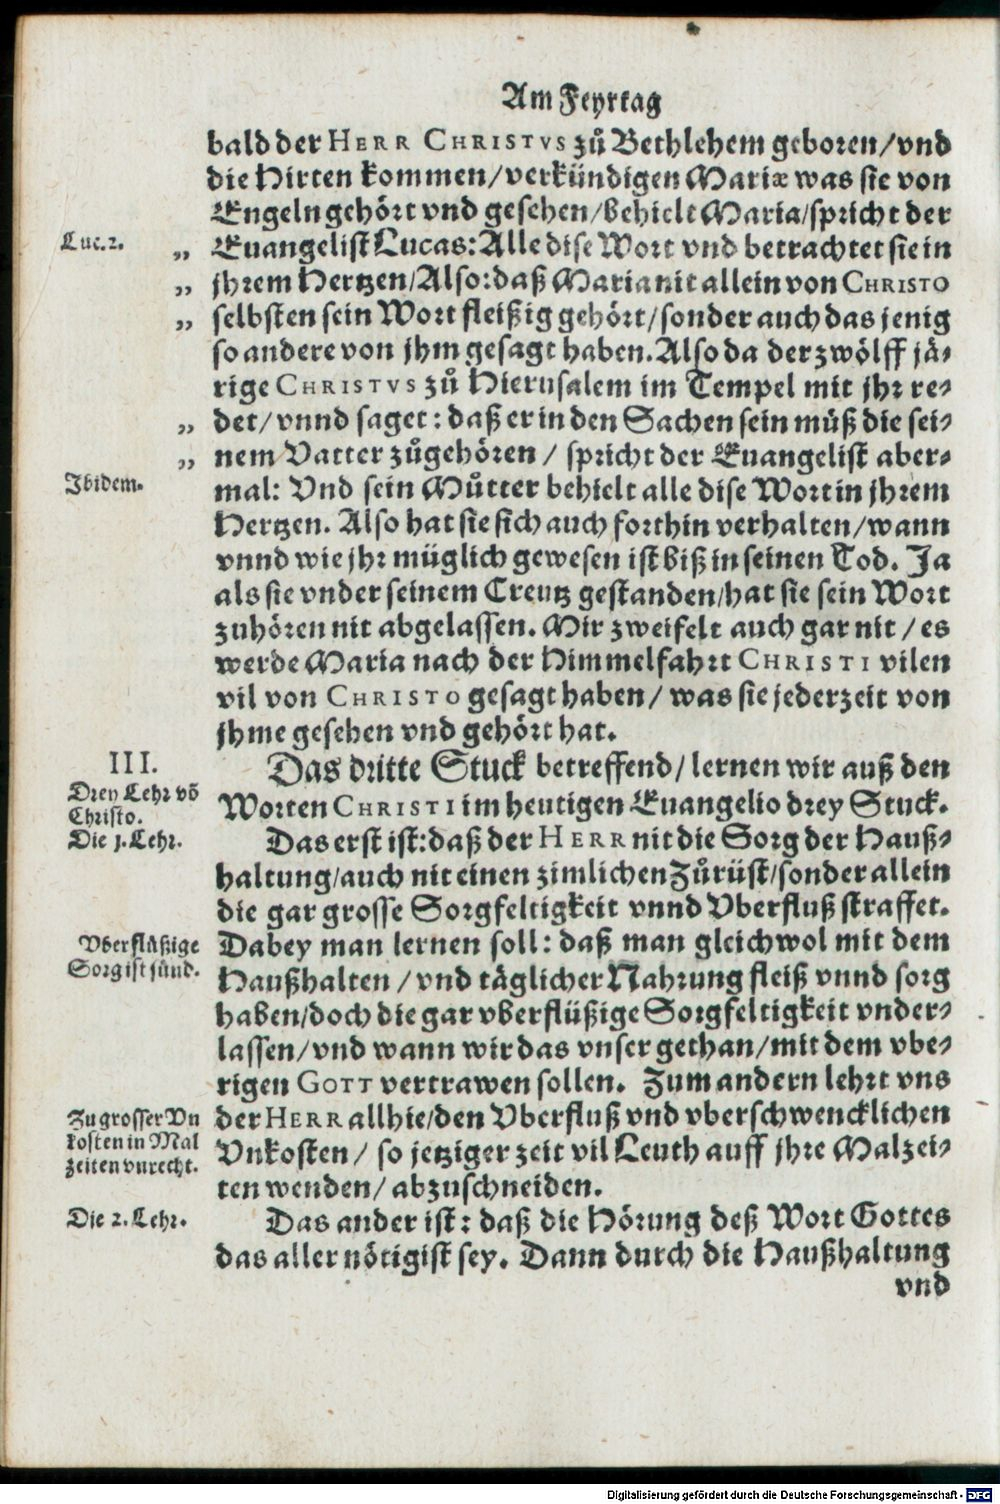 Am Feyrtag
bald der HERR CHRISTVS zů Bethlehem geboren/vnd
die Hirten kommen/verkündigen Mariæ was sie von
Engeln gehört vnd gesehen/behielt Maria/spricht der
Luc. 2. „ Euangelist Lucas: Alle dise Wort vnd betrachtet sie in
„ jhrem Hertzen/Also: daß Maria nit allein von CHRISTO
„ selbsten sein Wort fleißig gehört/sonder auch das jenig
so andere von jhm gesagt haben. Also da der zwölff jä-
rige CHRISTVS zů Hierusalem im Tempel mit jhr re-
„ det/vnnd saget: daß er in den Sachen sein müß die sei-
„ nem Vatter zůgehören/spricht der Euangelist aber-
Ibidem. mal: Vnd sein Můtter behielt alle dise Wort in jhrem
Hertzen. Also hat sie sich auch forthin verhalten/wann
vnnd wie jhr müglich gewesen ist biß in seinen Tod. Ja
als sie vnder seinem Creutz gestanden/hat sie sein Wort
zuhören nit abgelassen. Mir zweifelt auch gar nit/es
werde Maria nach der Himmelfahrt CHRISTI vilen
vil von CHRISTO gesagt haben/was sie jederzeit von
jhme gesehen vnd gehört hat.
III. Das dritte Stuck betreffend/lernen wir auß den
Drey Lehr võ
Christo.
Worten CHRISTI im heutigen Euangelio drey Stuck.
Die 1. Lehr. Das erst ist: daß der HERR nit die Sorg der Hauß-
haltung/auch nit einen zimlichen Zůrüst/sonder allein
die gar grosse Sorgfeltigkeit vnnd Vberfluß straffet.
Vberflüßige
Sorg ist sünd.
Dabey man lernen soll: daß man gleichwol mit dem
Haußhalten/vnd täglicher Nahrung fleiß vnnd sorg
haben/doch die gar vberflüßige Sorgfeltigkeit vnder-
lassen/vnd wann wir das vnser gethan/mit dem vbe-
rigen GOTT vertrawen sollen. Zum andern lehrt vns
Zu grosser Vn
kosten in Mal
zeiten vnrecht.
der HERR allhie/den Vberfluß vnd vberschwencklichen
Vnkosten/so jetziger zeit vil Leuth auff jhre Malzei-
ten wenden/abzuschneiden.
Die 2. Lehr. Das ander ist: daß die Hörung deß Wort Gottes
das aller nötigist sey. Dann durch die Haußhaltung
vnd
Digitalisierung gefördert durch die Deutsche Forschungsgemeinschaft - DFG